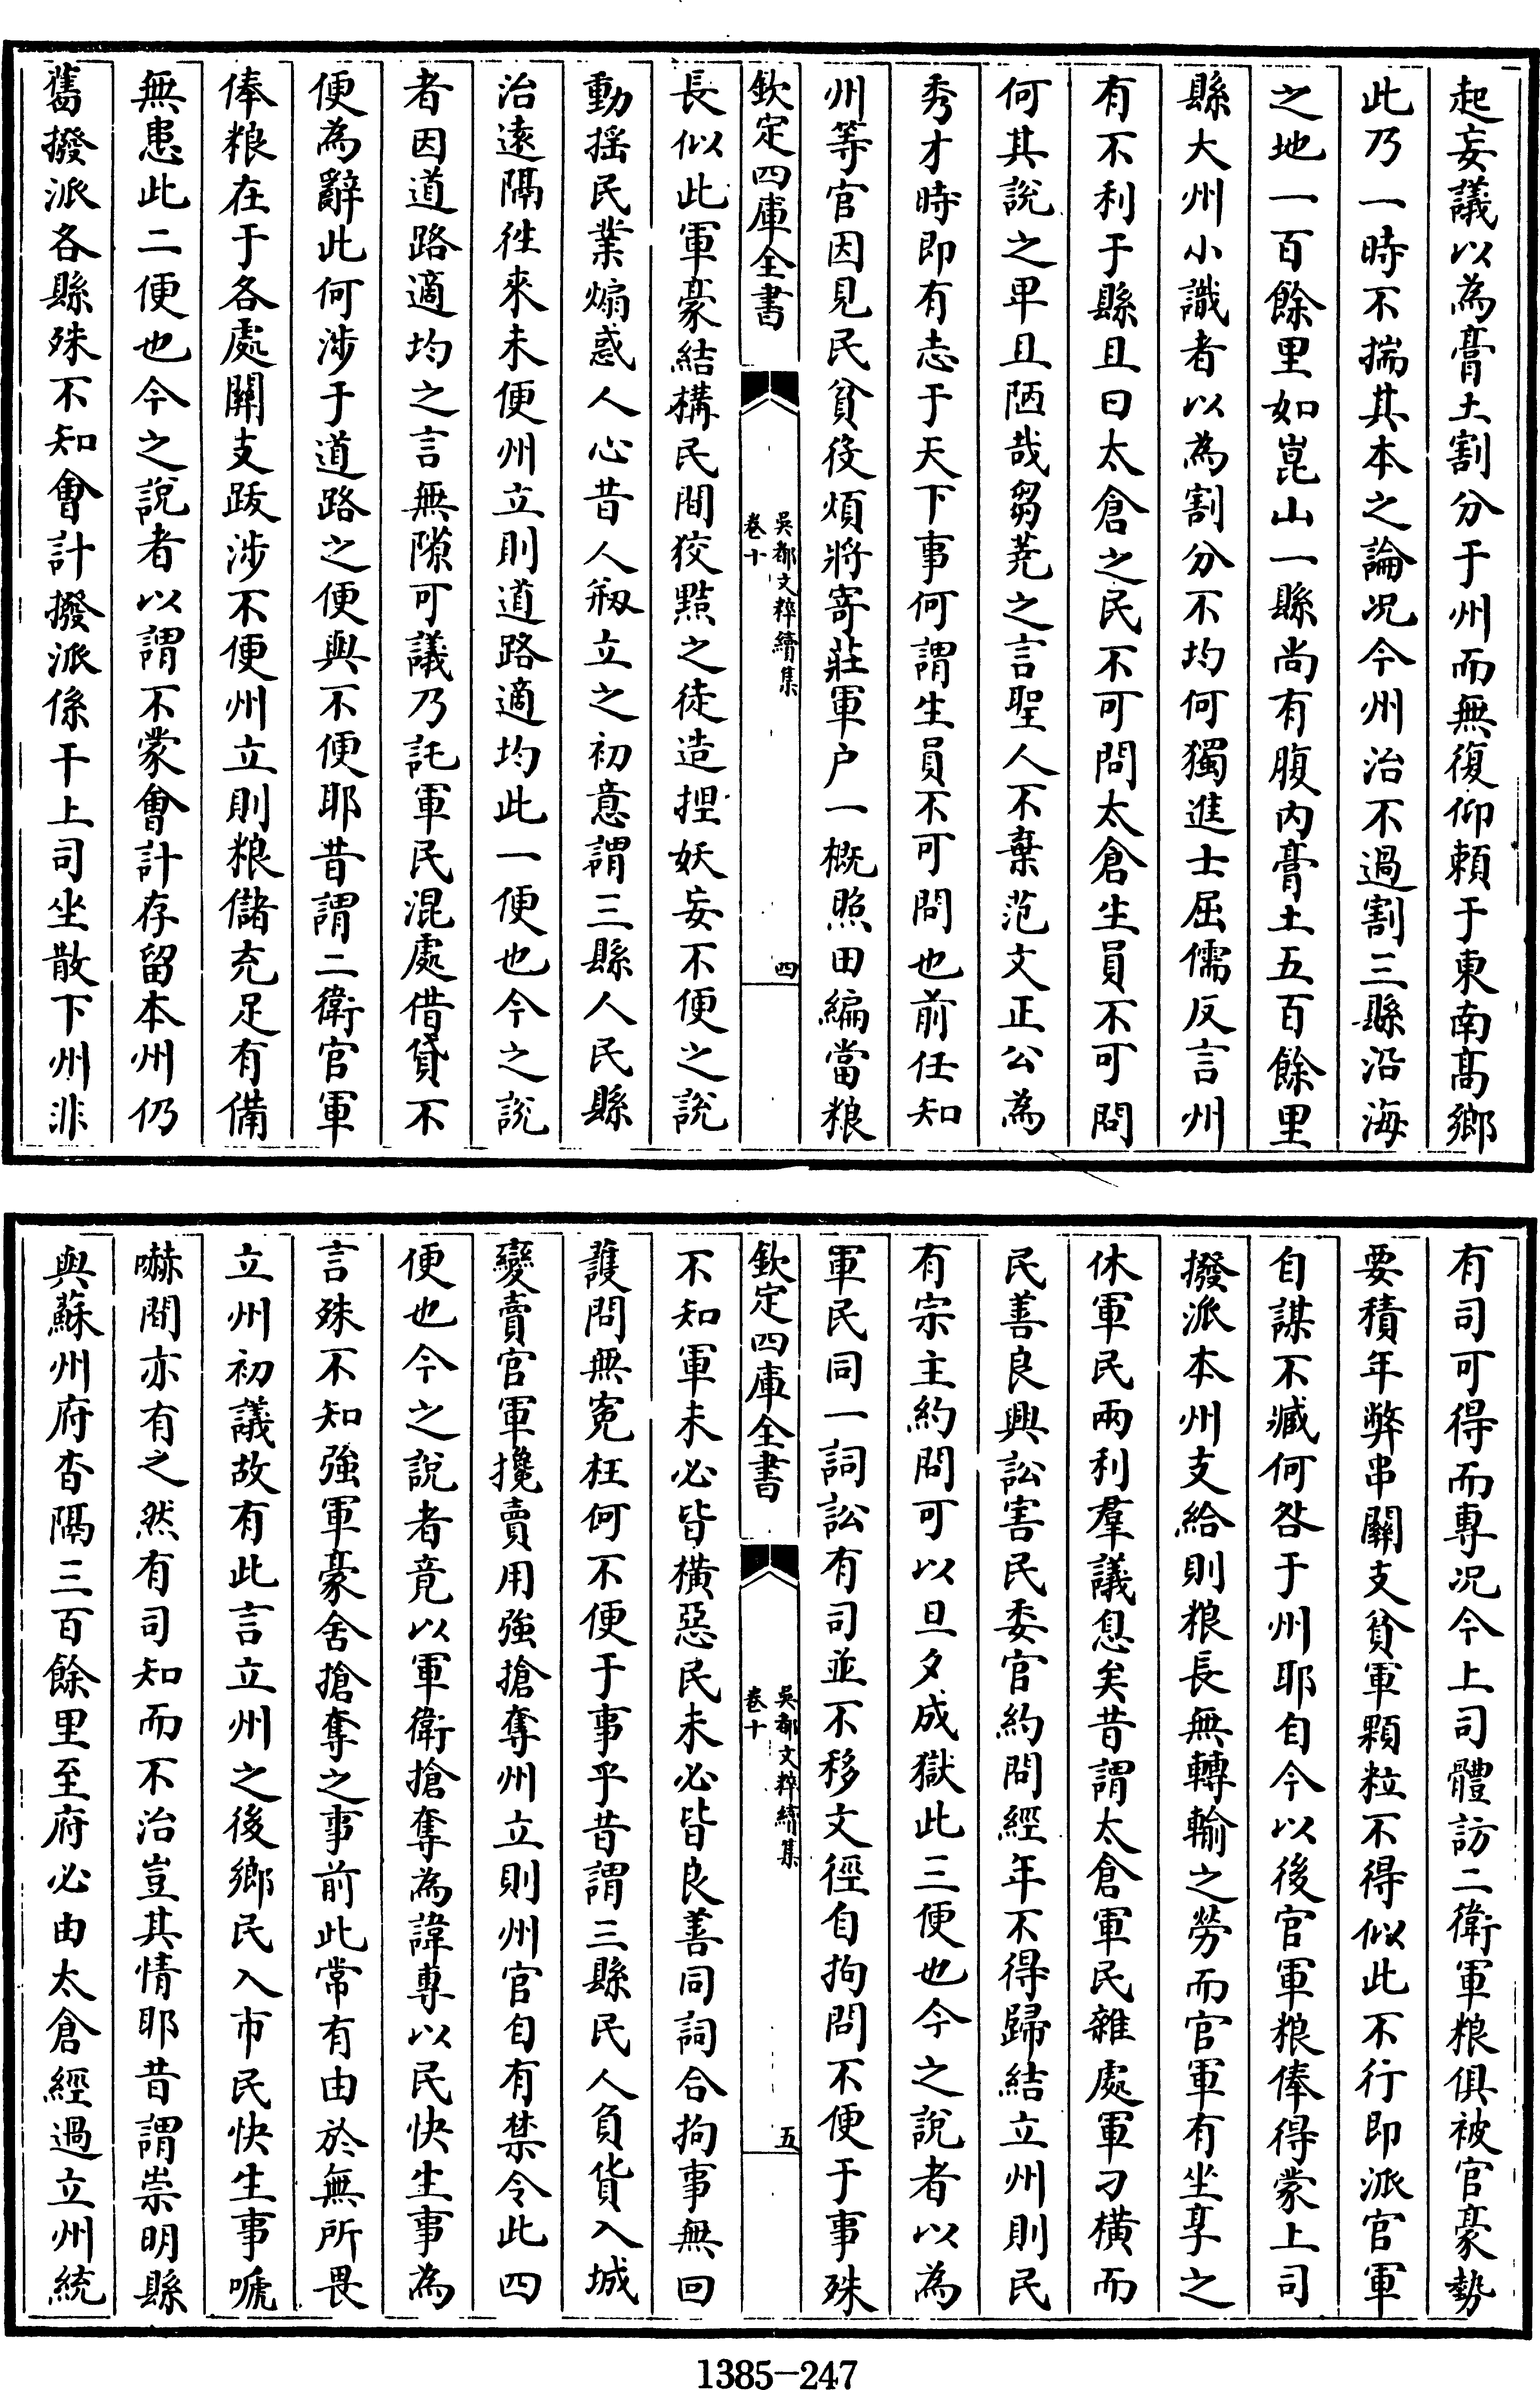 起妄議以為膏土割分于州而無復仰賴于東南髙鄉
此乃一時不揣其本之論况今州治不過割三縣沿海
之地一百餘里如崑山一縣尚有腹内膏土五百餘里
縣大州小識者以為割分不均何獨進士屈儒反言州
有不利于縣且曰太倉之民不可問太倉生員不可問
何其說之卑且陋哉芻蕘之言聖人不棄范文正公為
秀才時即有志于天下事何謂生員不可問也前任知
州等官因見民貧役煩將寄莊軍户一概照田編當粮
欽定四庫全書
吳都文粹續集
卷十
四
長似此軍豪結構民間狡黠之徒造捏妖妄不便之說
動揺民業煽惑人心昔人剏立之初意謂三縣人民縣
治逺隔徃來未便州立則道路適均此一便也今之說
者因道路適均之言無隙可議乃託軍民混處借貸不
便為辭此何涉于道路之便與不便耶昔謂二衛官軍
俸粮在于各處關支跋涉不便州立則粮儲充足有備
無患此二便也今之說者以謂不蒙會計存留本州仍
舊撥派各縣殊不知會計撥派係干上司坐散下州非
有司可得而專况今上司體訪二衛軍粮俱被官豪勢
要積年弊串關支貧軍顆粒不得似此不行即派官軍
自謀不臧何咎于州耶自今以後官軍粮俸得蒙上司
撥派本州支給則粮長無轉輸之勞而官軍有坐享之
休軍民兩利羣議息矣昔謂太倉軍民雜處軍刁橫而
民善良興訟害民委官約問經年不得歸結立州則民
有宗主約問可以旦夕成獄此三便也今之說者以為
軍民同一詞訟有司並不移文徑自拘問不便于事殊
欽定四庫全書
吳都文粹續集
卷十
五
不知軍未必皆橫惡民未必皆良善同詞合拘事無回
護問無寃枉何不便于事乎昔謂三縣民人負貨入城
變賣官軍攙賣用強搶奪州立則州官自有禁令此四
便也今之說者竟以軍衛搶奪為諱專以民快生事為
言殊不知強軍豪舍搶奪之事前此常有由於無所畏
立州初議故有此言立州之後鄉民入市民快生事嚇
嚇間亦有之然有司知而不治豈其情耶昔謂崇明縣
與蘇州府杳隔三百餘里至府必由太倉經過立州統
1385-247